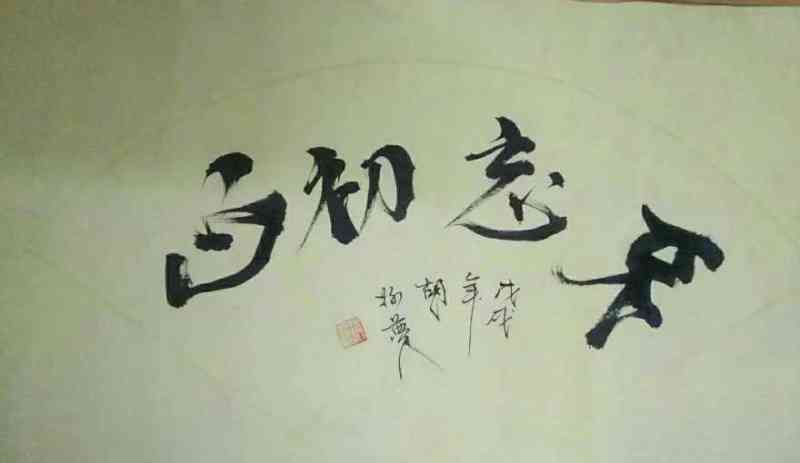 不忘初心
戊戌
年
胡